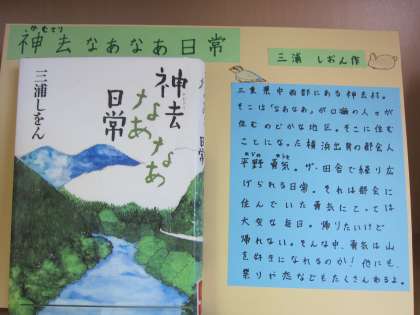 かむさり
神去なあなあ日常
三浦 しおん作
三浦しをん
神去
なあ
なあ
日常
三重県中西部にある神去村。
そこは「なあなあ」が口癖の人々が
住むのどかな地区。そこに住む
ことになった横浜出身の都会人
ひらの ゆうき
平野 勇気。ザ・田舎で繰り広
げられる日常。それは都会に
住んでいた勇気にとっては
大変な毎日。帰りたいけど
帰れない。そんな中、勇気は山
を好きになれるのか！他にも、
祭りや恋などもたくさんあるよ。